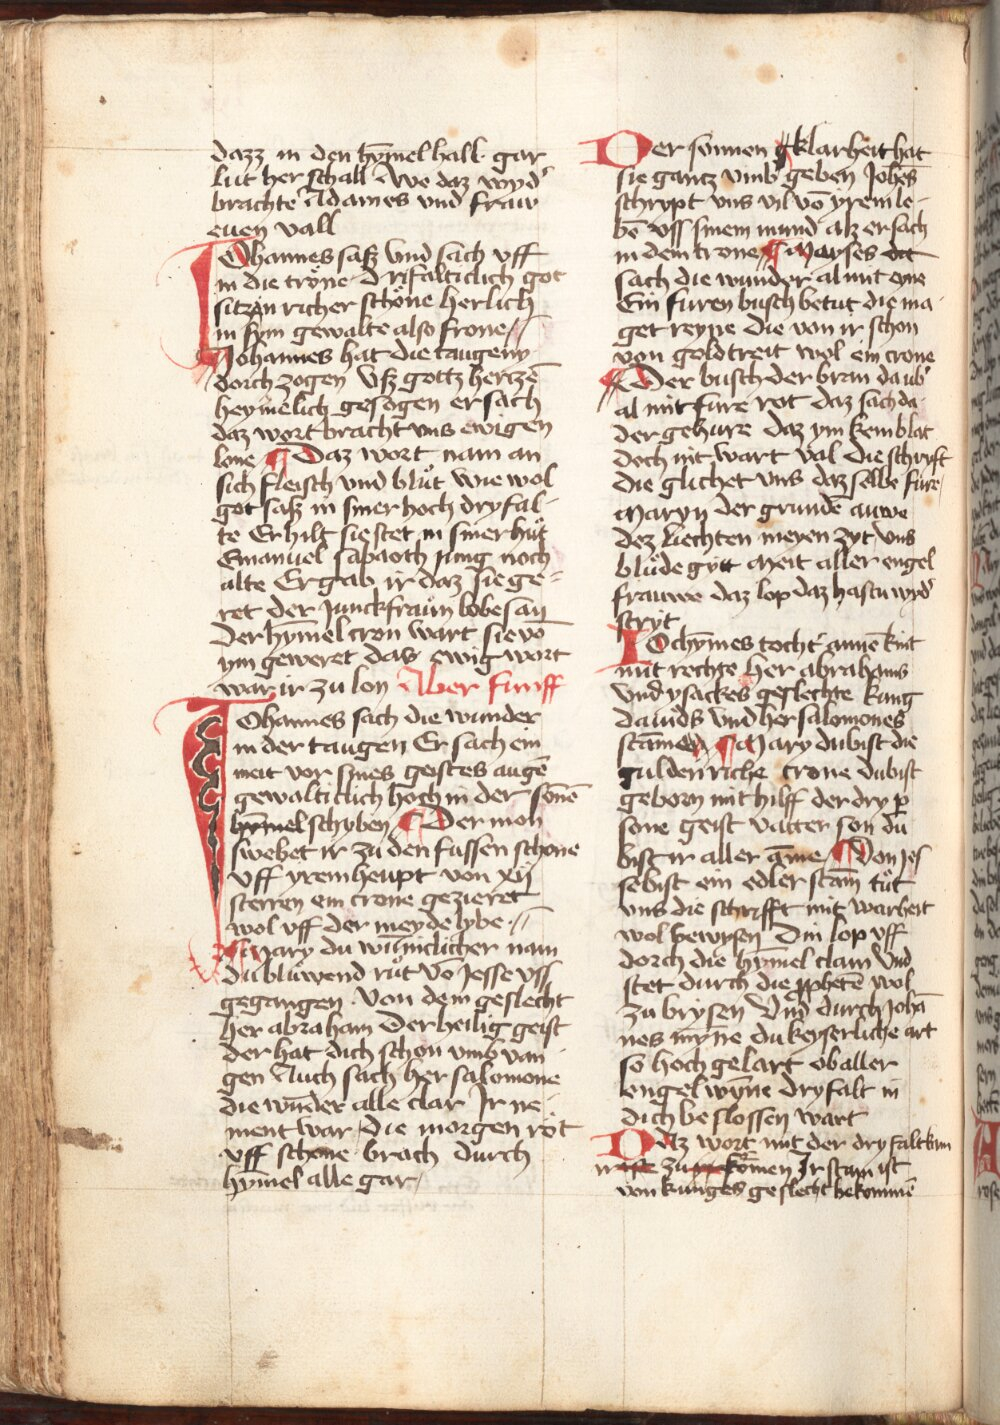 dazz in den hym̄el hall· gar
lut her schall We daz wyd'
brachte Adames vnd frauw
euen vall
IOhannes sasz vnd sach vff
in die tröne· drifalticlich got
sitzen richer schöne herlich
in sym gewalte also frone //
Johannes hat die taugeny
dorch zogen vsz gottz hertzē
heymelich gesogen er sach
daz wort bracht vns ewigen
lone ¶ Daz wort nam an
sich fleisch vnd blůt wie wol
got sasz in siner hoch dryfal-
te Er hilt sie stet in siner hůt
Emanuel sapaoth jung noch
alte Er gab ir daz sie ge=
ret der Junckfraůn lobesan
Der hym̄el cron wart sie vō
ym geweret das ewig wort
war ir zu lon Aber funff
IOhannes sach die wunder
in der taugen Er sach ein
meit vor sines geistes augē
gewalticlich hoch in der son̄ē
hym̄el schyben ¶ Der mon
swebet ir zu den fussen schone
vff yrem heupt von xij
sterren ein crone gezieret
wol vff der meyde lybe·//
Mary du win̄iclicher nam
du bluwend růt vō Jesse vss
gegangen· Von dem geslecht
her abraham Der heilig geist
der hat dich schon vmb van
gen Auch sach her salomone
die wūder alle clar Ir ne-
ment war die morgen rőt
vff schone brach durch
hym̄el alle gar /
Der sonnen klarheit hat
sie gantz vmb geben Johēs
schrypt vns vil vō yrem le-
bē vss sinem mund alz er sach
in dem trone ¶ Moyses
sach die wunder al mit eyne
Ein furen busch betut die ma-
get reyne die von ir schon
von gold treit wol ein crone
¶ Der busch der bran da ub'
al mit fure rot daz sach da-
der gehure daz ym kem blat
doch nit wart val die schryft
die glichet vns daz selbe fure
Maryn der grunde auwe
dez liechten meyen zyt vns
blůde gytt meit aller engel
frauwe daz lop daz hastu wyd'
stryt
IOchymes tocht' annē kint
mit rechte her abrahams
vnd ysackes geslechte kung
dauids vnd her salomones
stām̄en ¶ Mary du bist die
gulden riche trone du bist
geborn mit hilff der dry p
sone geist vatter son du
bist ir aller am̄e ¶ Von Jes
se bist ein edler stam tůt
vns die schrifft mit warheit
wol bewysen Din lop vff
dorch die hym̄el clam Vnd
stet durch die ꝓphetē wol
zu brysen Vnd durch Johā
nes myn̄e du keyserliche art
so hoch gelart ob aller
engel wyn̄e dryfalt in
dich beslossen wart
Datz wort mit der dryfalt kam
zu komen Ir stam ist
von kunges geslecht bekommē